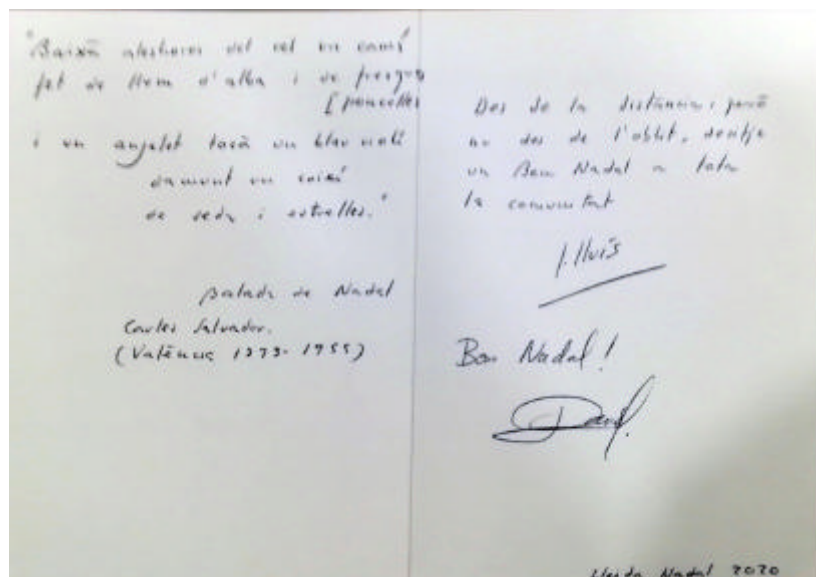 "Baixà aleshores del cel un camí
fet de llum d'alba i de fresques
[poncelles
i un angelet tocà un blau violí
damunt un coixí
de seda i estrelles."
Balada de Nadal
Carles Salvador.
(València 1893-1955)
Des de la distància, però
no des de l'oblit, desitje
un Bon Nadal a tota
la comunitat
J. Lluís
Bon Nadal!
David.
Lleida Nadal 2020